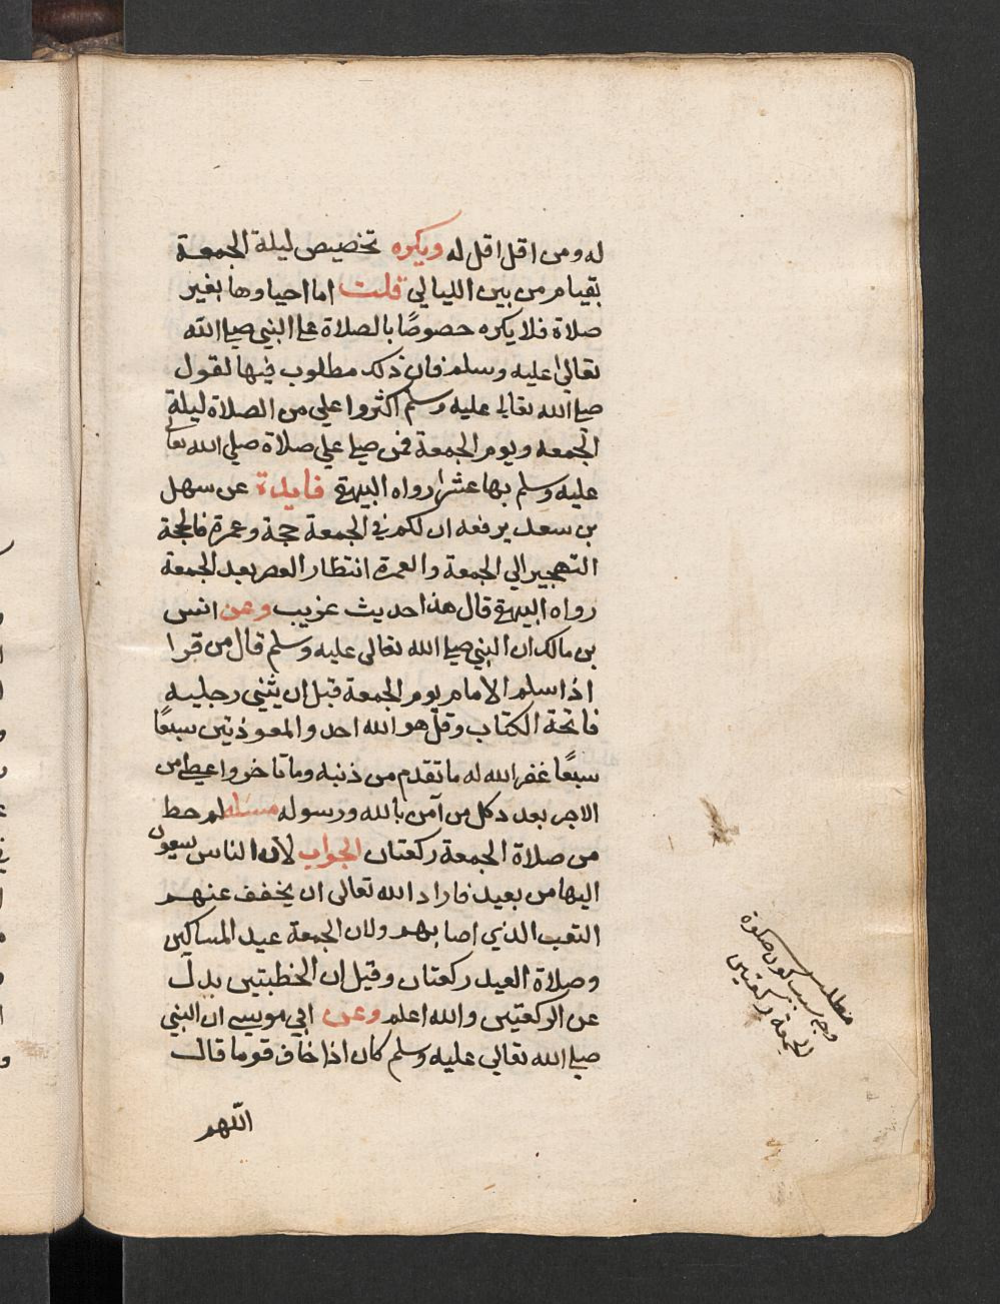 له ومن اقل اقل له ويكره تخصيص ليلة الجمعة
بقيام من بين الليالي قلت اما احياوها بغير
صلاة فلا يكره خصوصًا بالصلاة على النبي صلى الله
تعالى عليه وسلم فان ذلك مطلوب فيها لقول
صلى الله تعالى عليه وسلم اكثروا علي من الصلاة ليلة
الجمعه ويوم الجمعة فمن صلى علي صلاة صلى الله تعالى
عليه وسلم بها عشرا رواه البيهقي فايدة عن سهل
بن سعد يرفعه ان لكم في الجمعة حجة وعمرة فالحجة
التهجير الي الجمعة والعمرة انتظار العصر بعد الجمعة
رواه البيهقي قال هذا حديث غريب وعن انس
بن مالك ان النبي صلى الله تعالى عليه وسلم قال من قرا
اذا سلم الامام يوم الجمعة قبل ان يثني رجليه
فاتحة الكتاب وقل هو الله احد والمعوذتين سبعًا
سبعًا غفر الله له ما تقدم من ذنبه وما تاخر واعطي من
الاجر بعدد كل من آمن بالله ورسوله مسئله لم حط
من صلاة الجمعة ركعتان الجواب لان الناس يسعون
اليها من بعيد فاراد الله تعالى ان يخفف عنهم
التعب الذي اصابهم ولان الجمعة عيد المساكين
وصلاة العيد ركعتان وقيل ان الخطبتين بدل
عن الركعتين والله اعلم وعن ابي موسى ان النبي
صلى الله تعالى عليه وسلم كان اذا خاف قوما قال
اللهم
مطلب
وجه سبب كون صلوة
الجمعة ركعتين